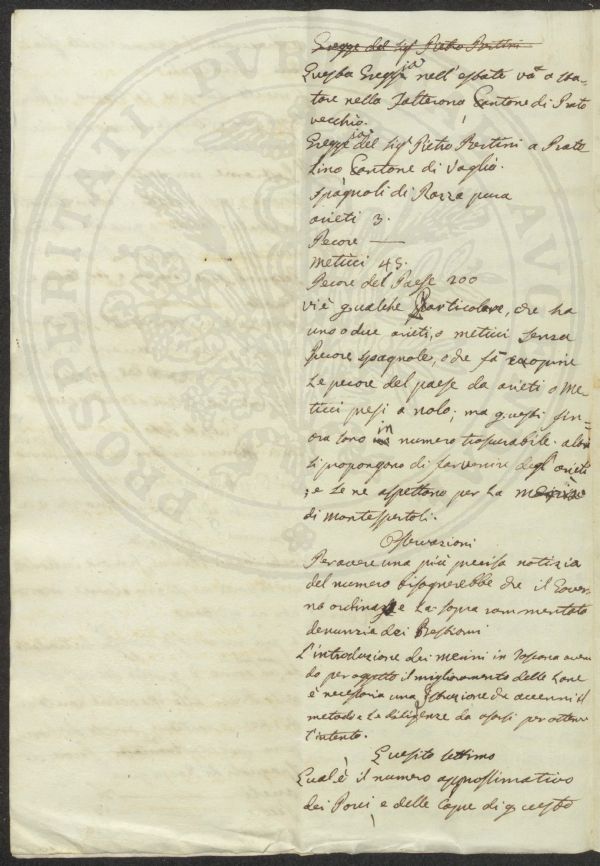 Gregge del Sigʳ Pietro Bertini
Questa Greggia nell'estate và a sta-
tare nella Falterona Cantone di Prato
vecchio.
Greggia del Sigʳ Pietro Bertini a Prato
lino Cantone di Vaglia.
Spagnoli di Razza pura
arieti 3.
Pecore —
Meticci 45.
Pecore del Paese 200
vi è qualche Particolare, che ha
uno o due arieti, o meticci senza
Pecore spagnole, o che fà coprire
le pecore del paese da arieti o Me-
ticci presi a nolo; ma questi fin-
ora sono in numero trascurabile. altri
si propongono di farvenire degl'arieti
; e se ne aspettono per la
di Montespertoli.
Osservazioni
Per avere una più precisa notizia
del numero bisognerebbe che il Gover-
no ordinasse la sopra rammentata
denunzia dei Bestiami
L'introduzione dei merini in Toscana aven-
do per oggetto il miglioramento delle Lane
è necessaria una Istruzione che accenni il
metodo e le diligenze da usarsi per ottener
l'intento.
Quesito settimo
Qual è il numero approssimativo
dei Porci e delle Capre di questo
PROSPERITATI PUBLICAE AUG